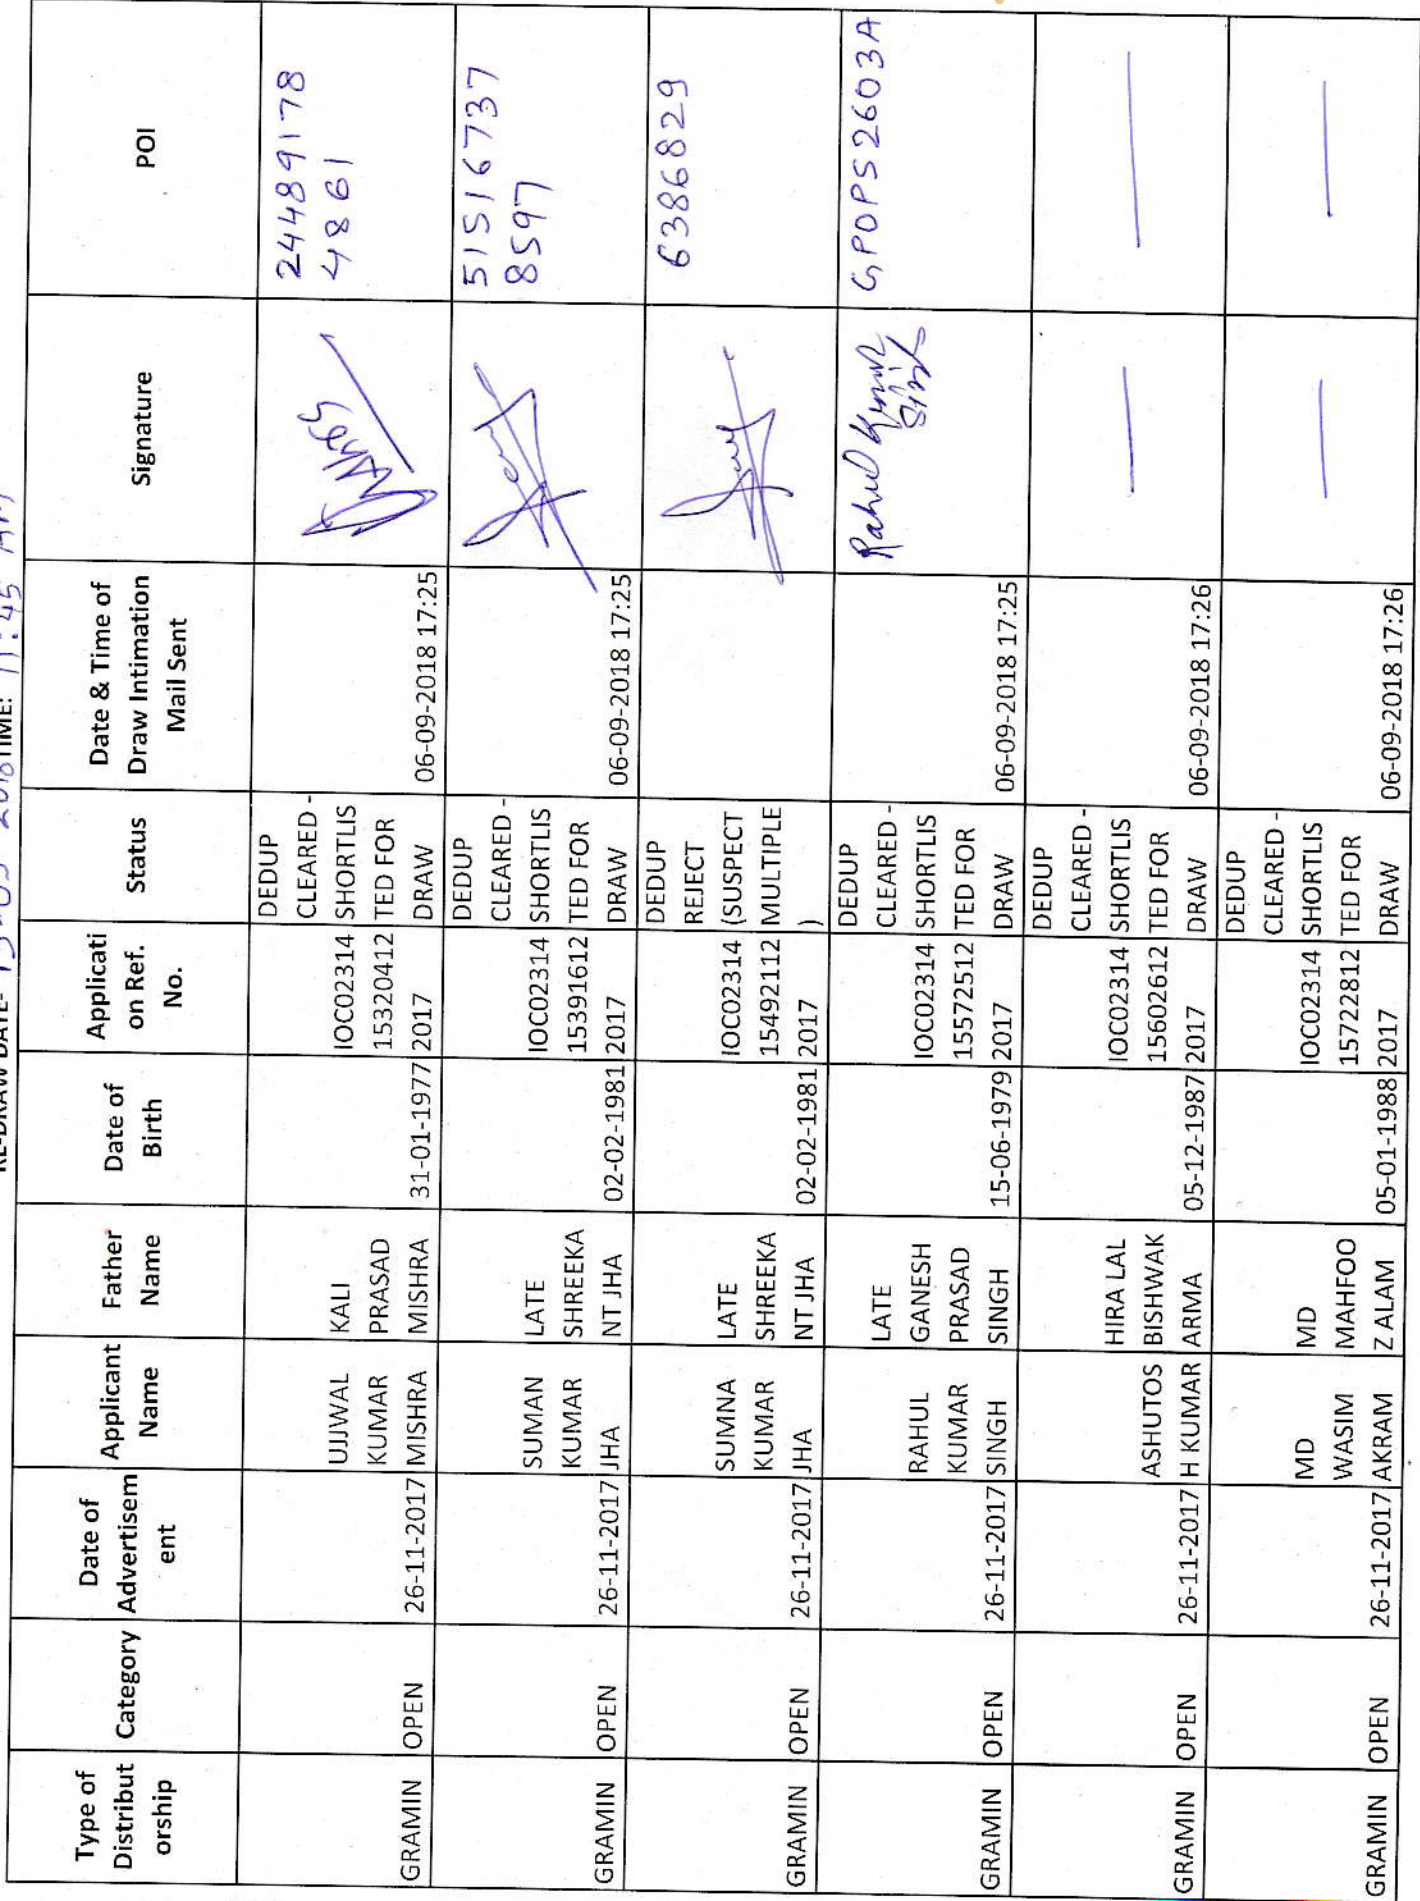 RE-DRAW DATE- 13-09-2018 TIME: 11:45 AM
Type of Distribut orship | Category | Date of Advertisem ent | Applicant Name | Father Name | Date of Birth | Applicati on Ref. No. | Status | Date & Time of Draw Intimation Mail Sent | Signature | POI
GRAMIN | OPEN | 26-11-2017 | UJJWAL KUMAR MISHRA | KALI PRASAD MISHRA | 31-01-1977 | IOC02314 15320412 2017 | DEDUP CLEARED - SHORTLIS TED FOR DRAW | 06-09-2018 17:25 | | 24489178 4861
GRAMIN | OPEN | 26-11-2017 | SUMAN KUMAR JHA | LATE SHREEKA NT JHA | 02-02-1981 | IOC02314 15391612 2017 | DEDUP CLEARED - SHORTLIS TED FOR DRAW | 06-09-2018 17:25 | | 51516737 8597
GRAMIN | OPEN | 26-11-2017 | SUMNA KUMAR JHA | LATE SHREEKA NT JHA | 02-02-1981 | IOC02314 15492112 2017 | DEDUP REJECT (SUSPECT MULTIPLE ) | | | 6386829
GRAMIN | OPEN | 26-11-2017 | RAHUL KUMAR SINGH | LATE GANESH PRASAD SINGH | 15-06-1979 | IOC02314 15572512 2017 | DEDUP CLEARED - SHORTLIS TED FOR DRAW | 06-09-2018 17:25 | Rahul Kumar Singh | GPOPS2603A
GRAMIN | OPEN | 26-11-2017 | ASHUTOS H KUMAR | HIRA LAL BISHWAK ARMA | 05-12-1987 | IOC02314 15602612 2017 | DEDUP CLEARED - SHORTLIS TED FOR DRAW | 06-09-2018 17:26 | — | —
GRAMIN | OPEN | 26-11-2017 | MD WASIM AKRAM | MD MAHFOO Z ALAM | 05-01-1988 | IOC02314 15722812 2017 | DEDUP CLEARED - SHORTLIS TED FOR DRAW | 06-09-2018 17:26 | — | —